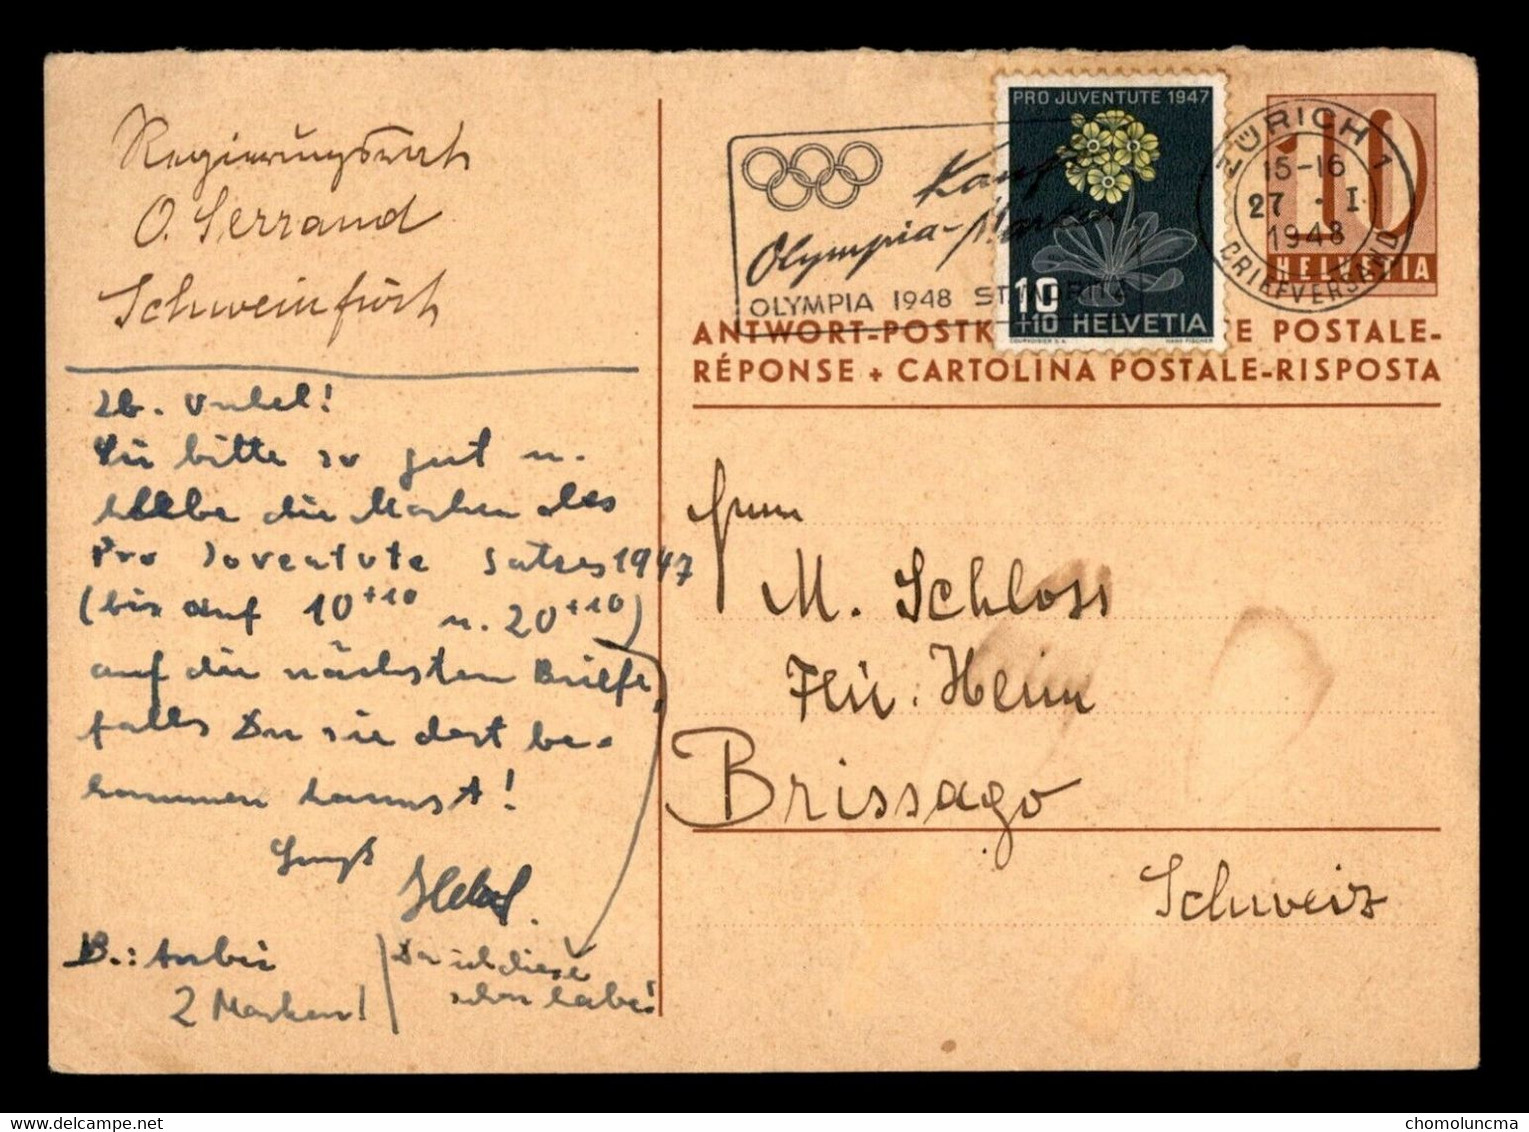 Regierungsrat
O. Serrand
Schweinfurt
Lb. Onkel!
Sei bitte so gut u.
klebe die Marken des
Pro Joventute Satzes 1947
(bis auf 10+10 u. 20+10)
auf die nächsten Briefe,
falls Du sie dort be-
kommen kannst!
Gruß
B.: Anbei
2 Marken!
Da ich diese
schon habe!
PRO JUVENTUTE 1947
10
+10 HELVETIA
COURVOISIER S.A. HANS FISCHER
Kauft
Olympia-Marken
OLYMPIA 1948 ST
ZÜRICH 1
15-16
27.I
1948
BRIEFVERSAND
10
HELVETIA
ANTWORT-POSTK E POSTALE-
RÉPONSE + CARTOLINA POSTALE-RISPOSTA
Herrn
M. Schloss
Flü. Heim
Brissago
Schweiz
chomoluncma